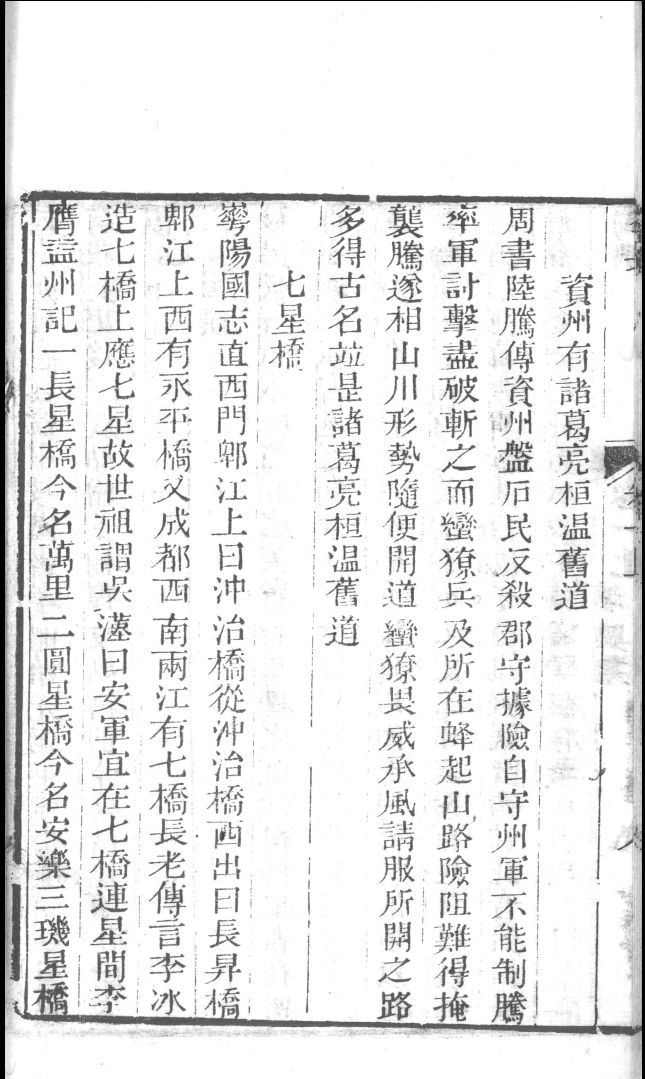 資州有諸葛亮桓温舊道
周書陸騰傳資州盤石民反殺郡守據險自守州軍不能制騰
率軍討擊盡破斬之而蠻獠兵及所在蜂起山路險阻難得掩
襲騰遂相山川形勢隨便開道蠻獠畏威承風請服所開之路
多得古名並是諸葛亮桓温舊道
七星橋
華陽國志直西門郫江上曰沖治橋從沖治橋西出曰長昇橋
郫江上西有永平橋又成都西南兩江有七橋長老傳言李冰
造七橋上應七星故世祖謂吳漢曰安軍宜在七橋連星間李
膺益州記一長星橋今名萬里二圓星橋今名安樂三璣星橋